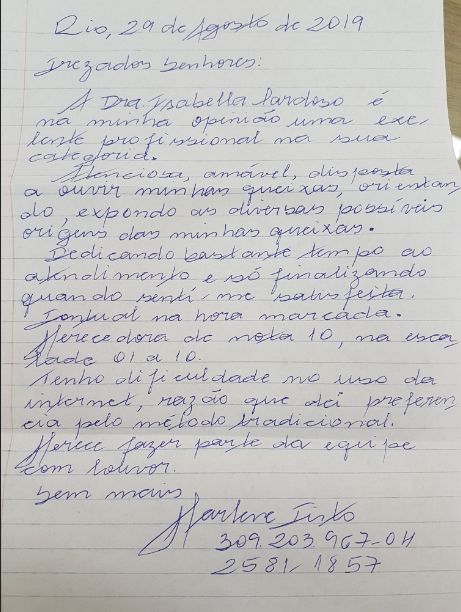 Rio, 29 de Agosto de 2019
Prezados Senhores:
A Dra. Isabella Cardoso é
na minha opinião uma exe-
lente profissional na sua
categoria.
Atenciosa, amável, disposta
a ouvir minhas queixas, orientan
do, expondo as diversas possíveis
origens das minhas queixas.
Dedicando bastante tempo ao
atendimento e só finalizando
quando sentí-me satisfeita.
Pontual na hora marcada.
Merecedora de nota 10, na esca
la de 01 a 10.
Tenho dificuldade no uso da
internet, razão que dei preferen
cia pelo método tradicional.
Merece fazer parte da equipe
com louvor.
Sem mais
Marlene
309.203.967-04
2581-1857